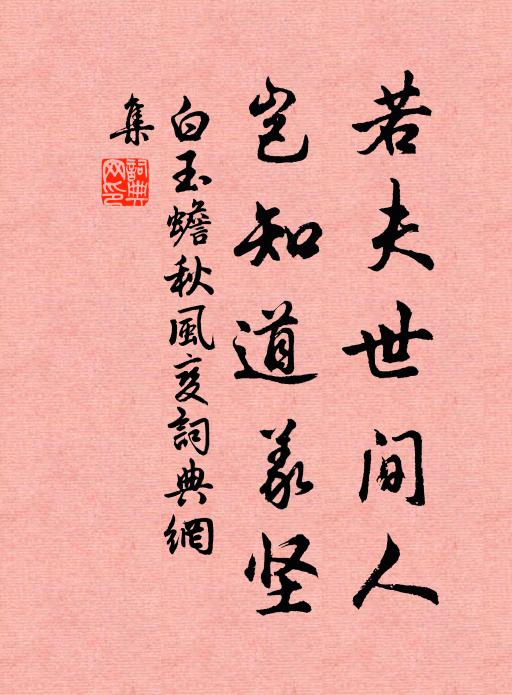 若夫世间人
岂知道义坚
白玉蟾秋風变詞典網
集
詞典网印